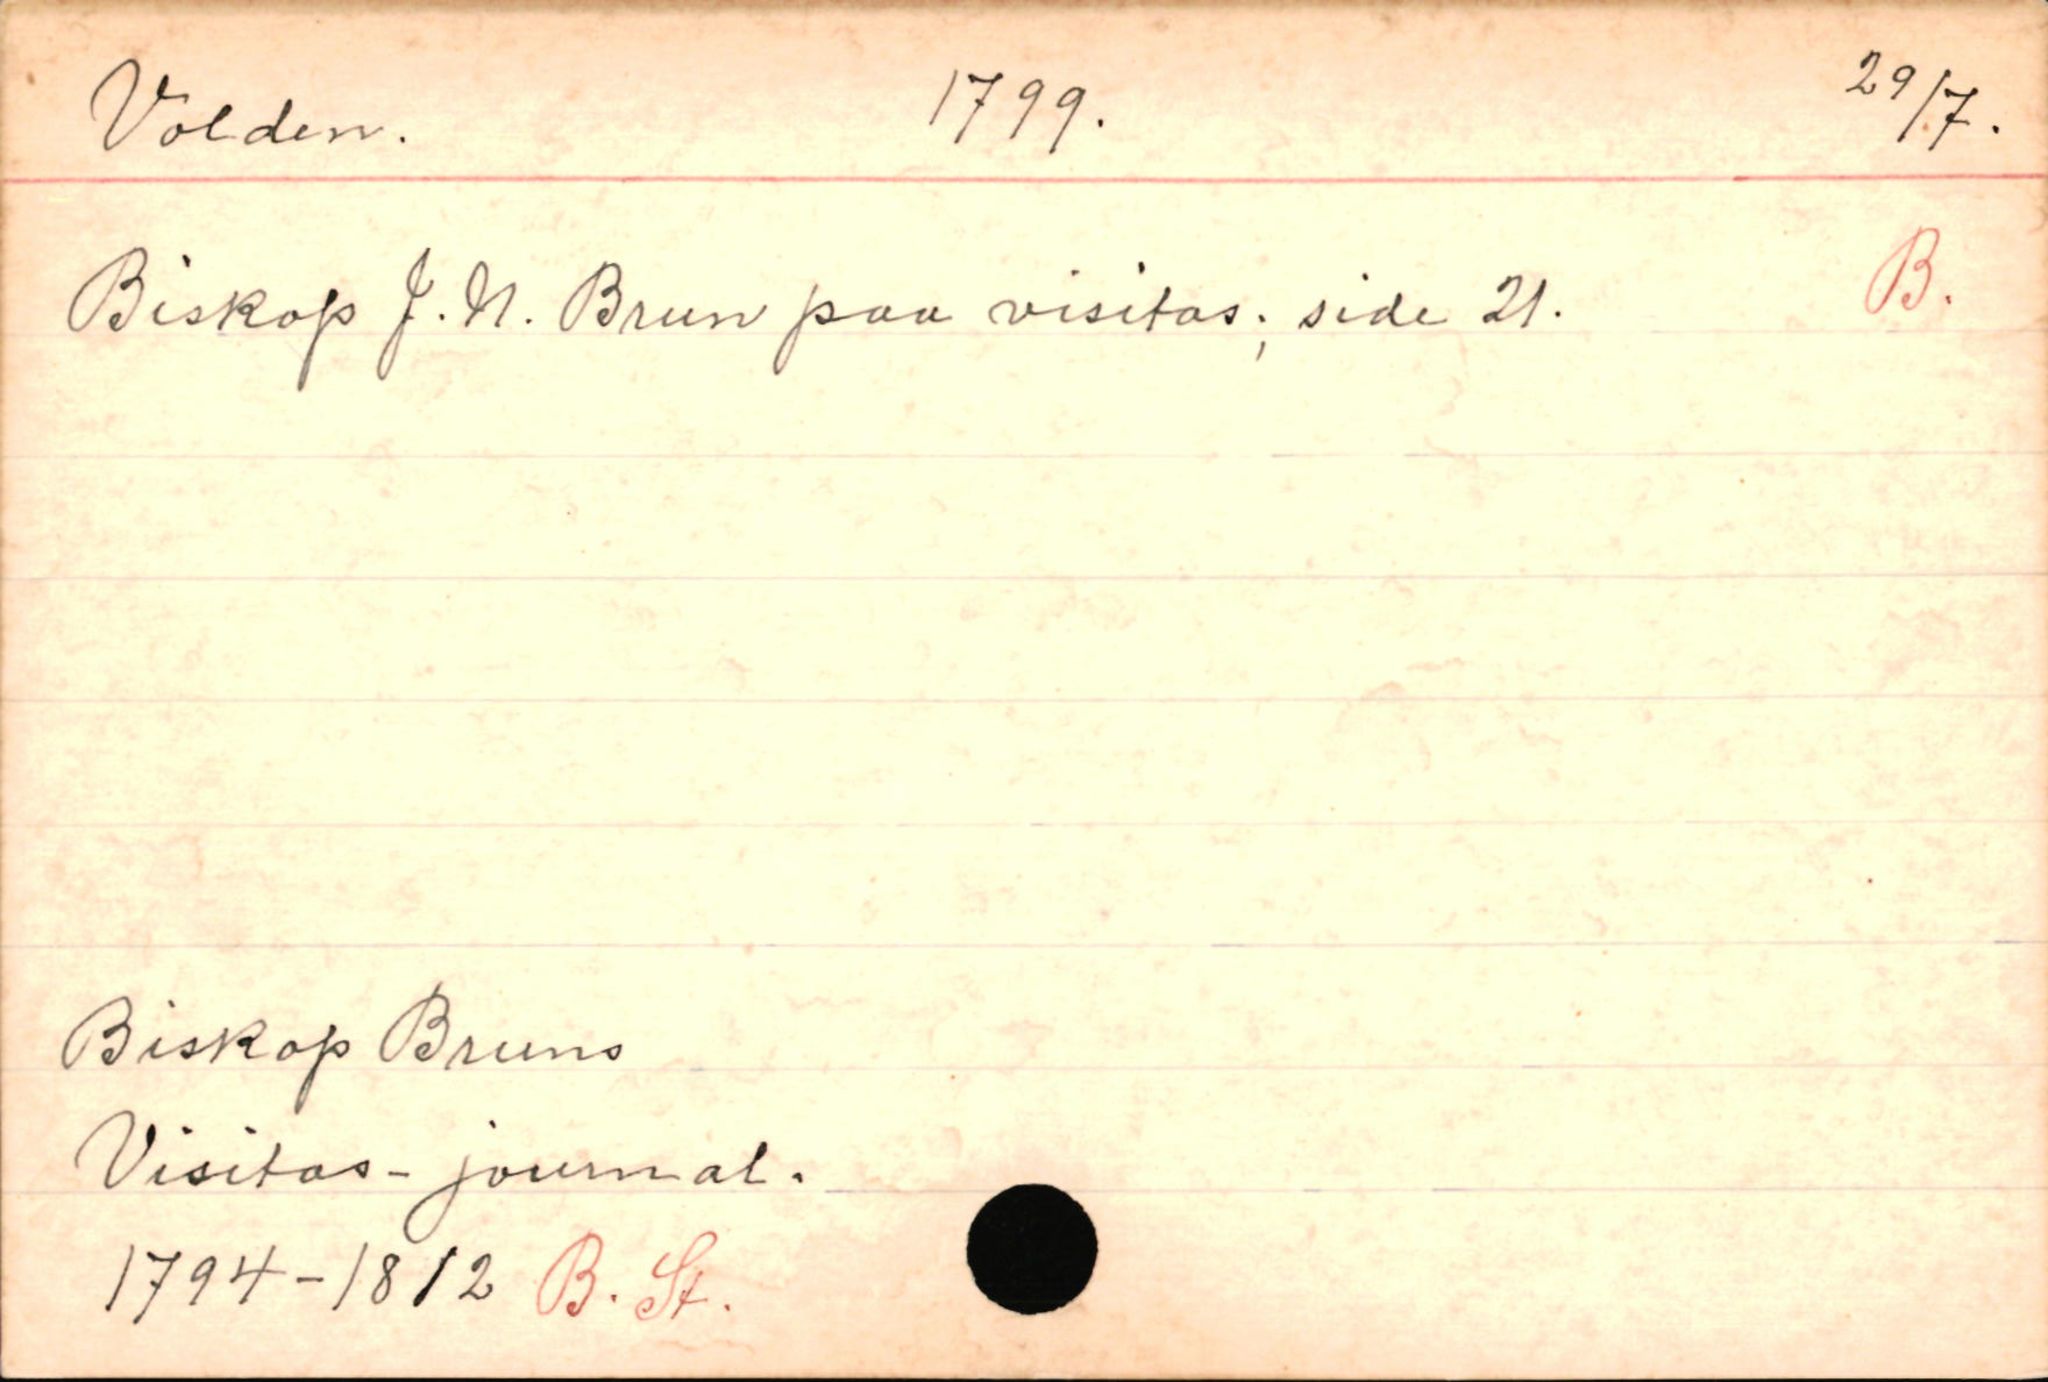 Volden. 1799. 29/7.
Biskop J. N. Brun paa visitas; side 21. B.
Biskop Bruns
Visitas-journal.
1794-1812 B. St.